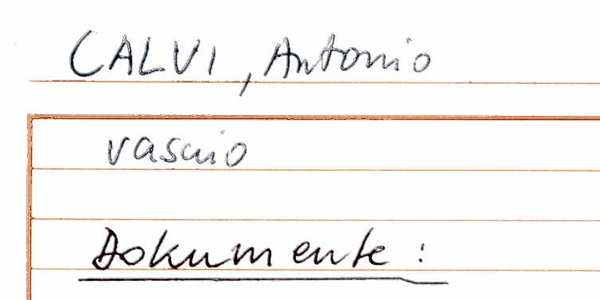 CALVI, Antonio
vasaio
Dokumente: